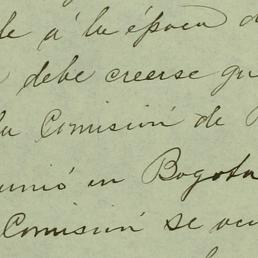 le á la época d
debe creerse qu
la Comisión de
unió en Bogota
Comisión se ocu